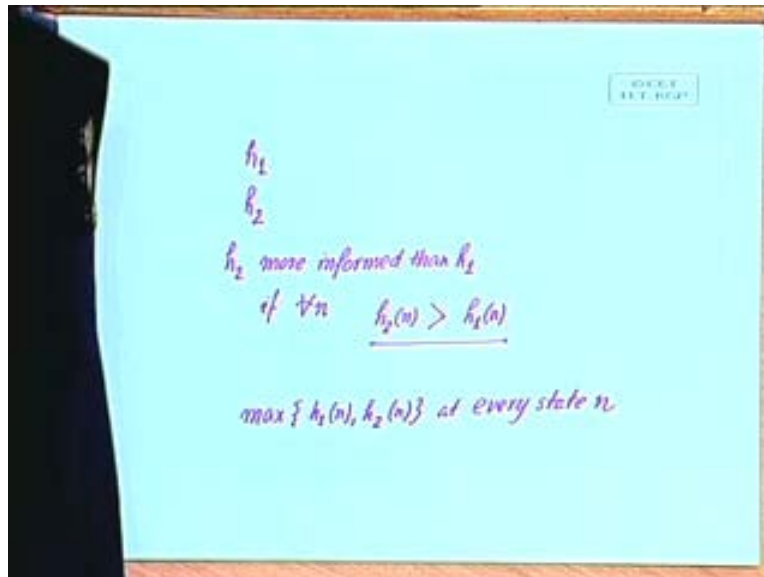 © CET
I.I.T. KGP
h₁
h₂
h₂ more informed than h₁
if ∀n h₂(n) > h₁(n)
max { h₁(n), h₂(n)} at every state n